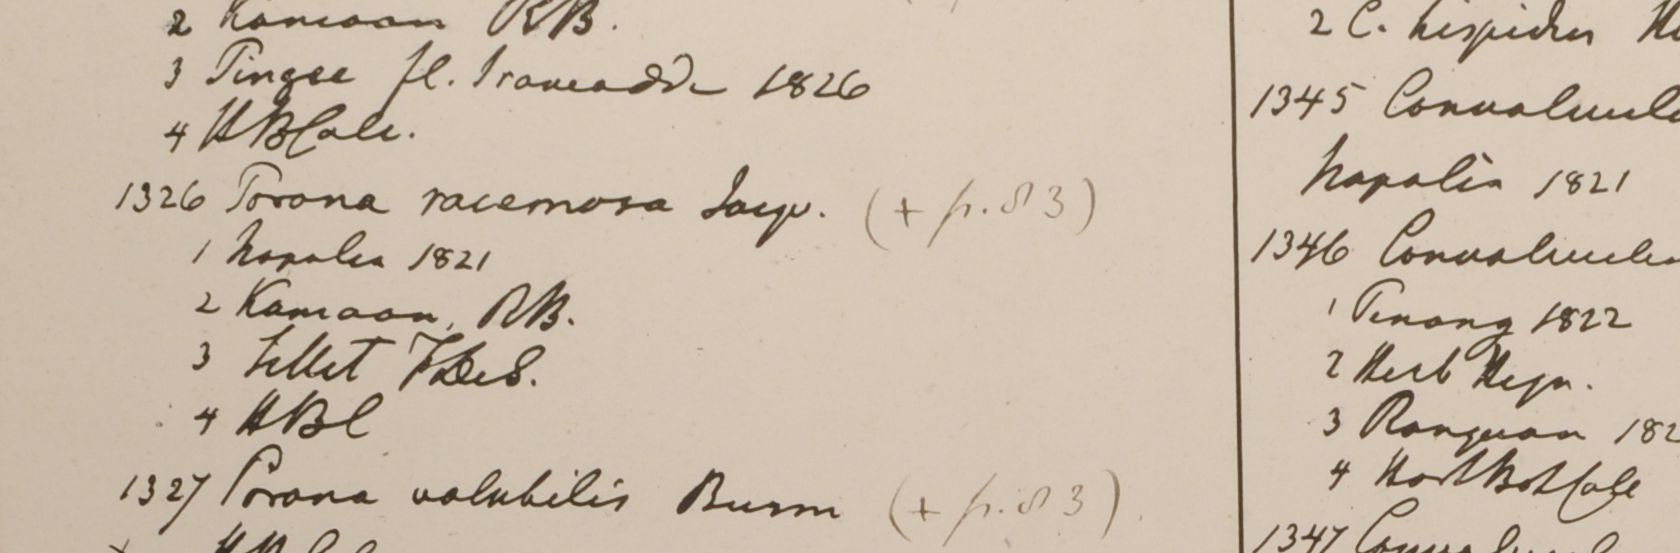 2 Kamaon RB.
3 Pingee fl. Irawaddi 1826
4 HBCalc.
1326 Porana racemosa Jacq. (+ p. 83)
1 Napalia 1821
2 Kamaon, RB.
3 Sillet FDeS.
4 HBC
1327 Porana volubilis Burm (+ p. 83)
2 C. hispidus
1345 Convolvul
Napalia 1821
1346 Convolvulu
1 Penang 1822
2 Herb Heyn.
3 Rangoon 182
4 Hort Bot Calc
1347